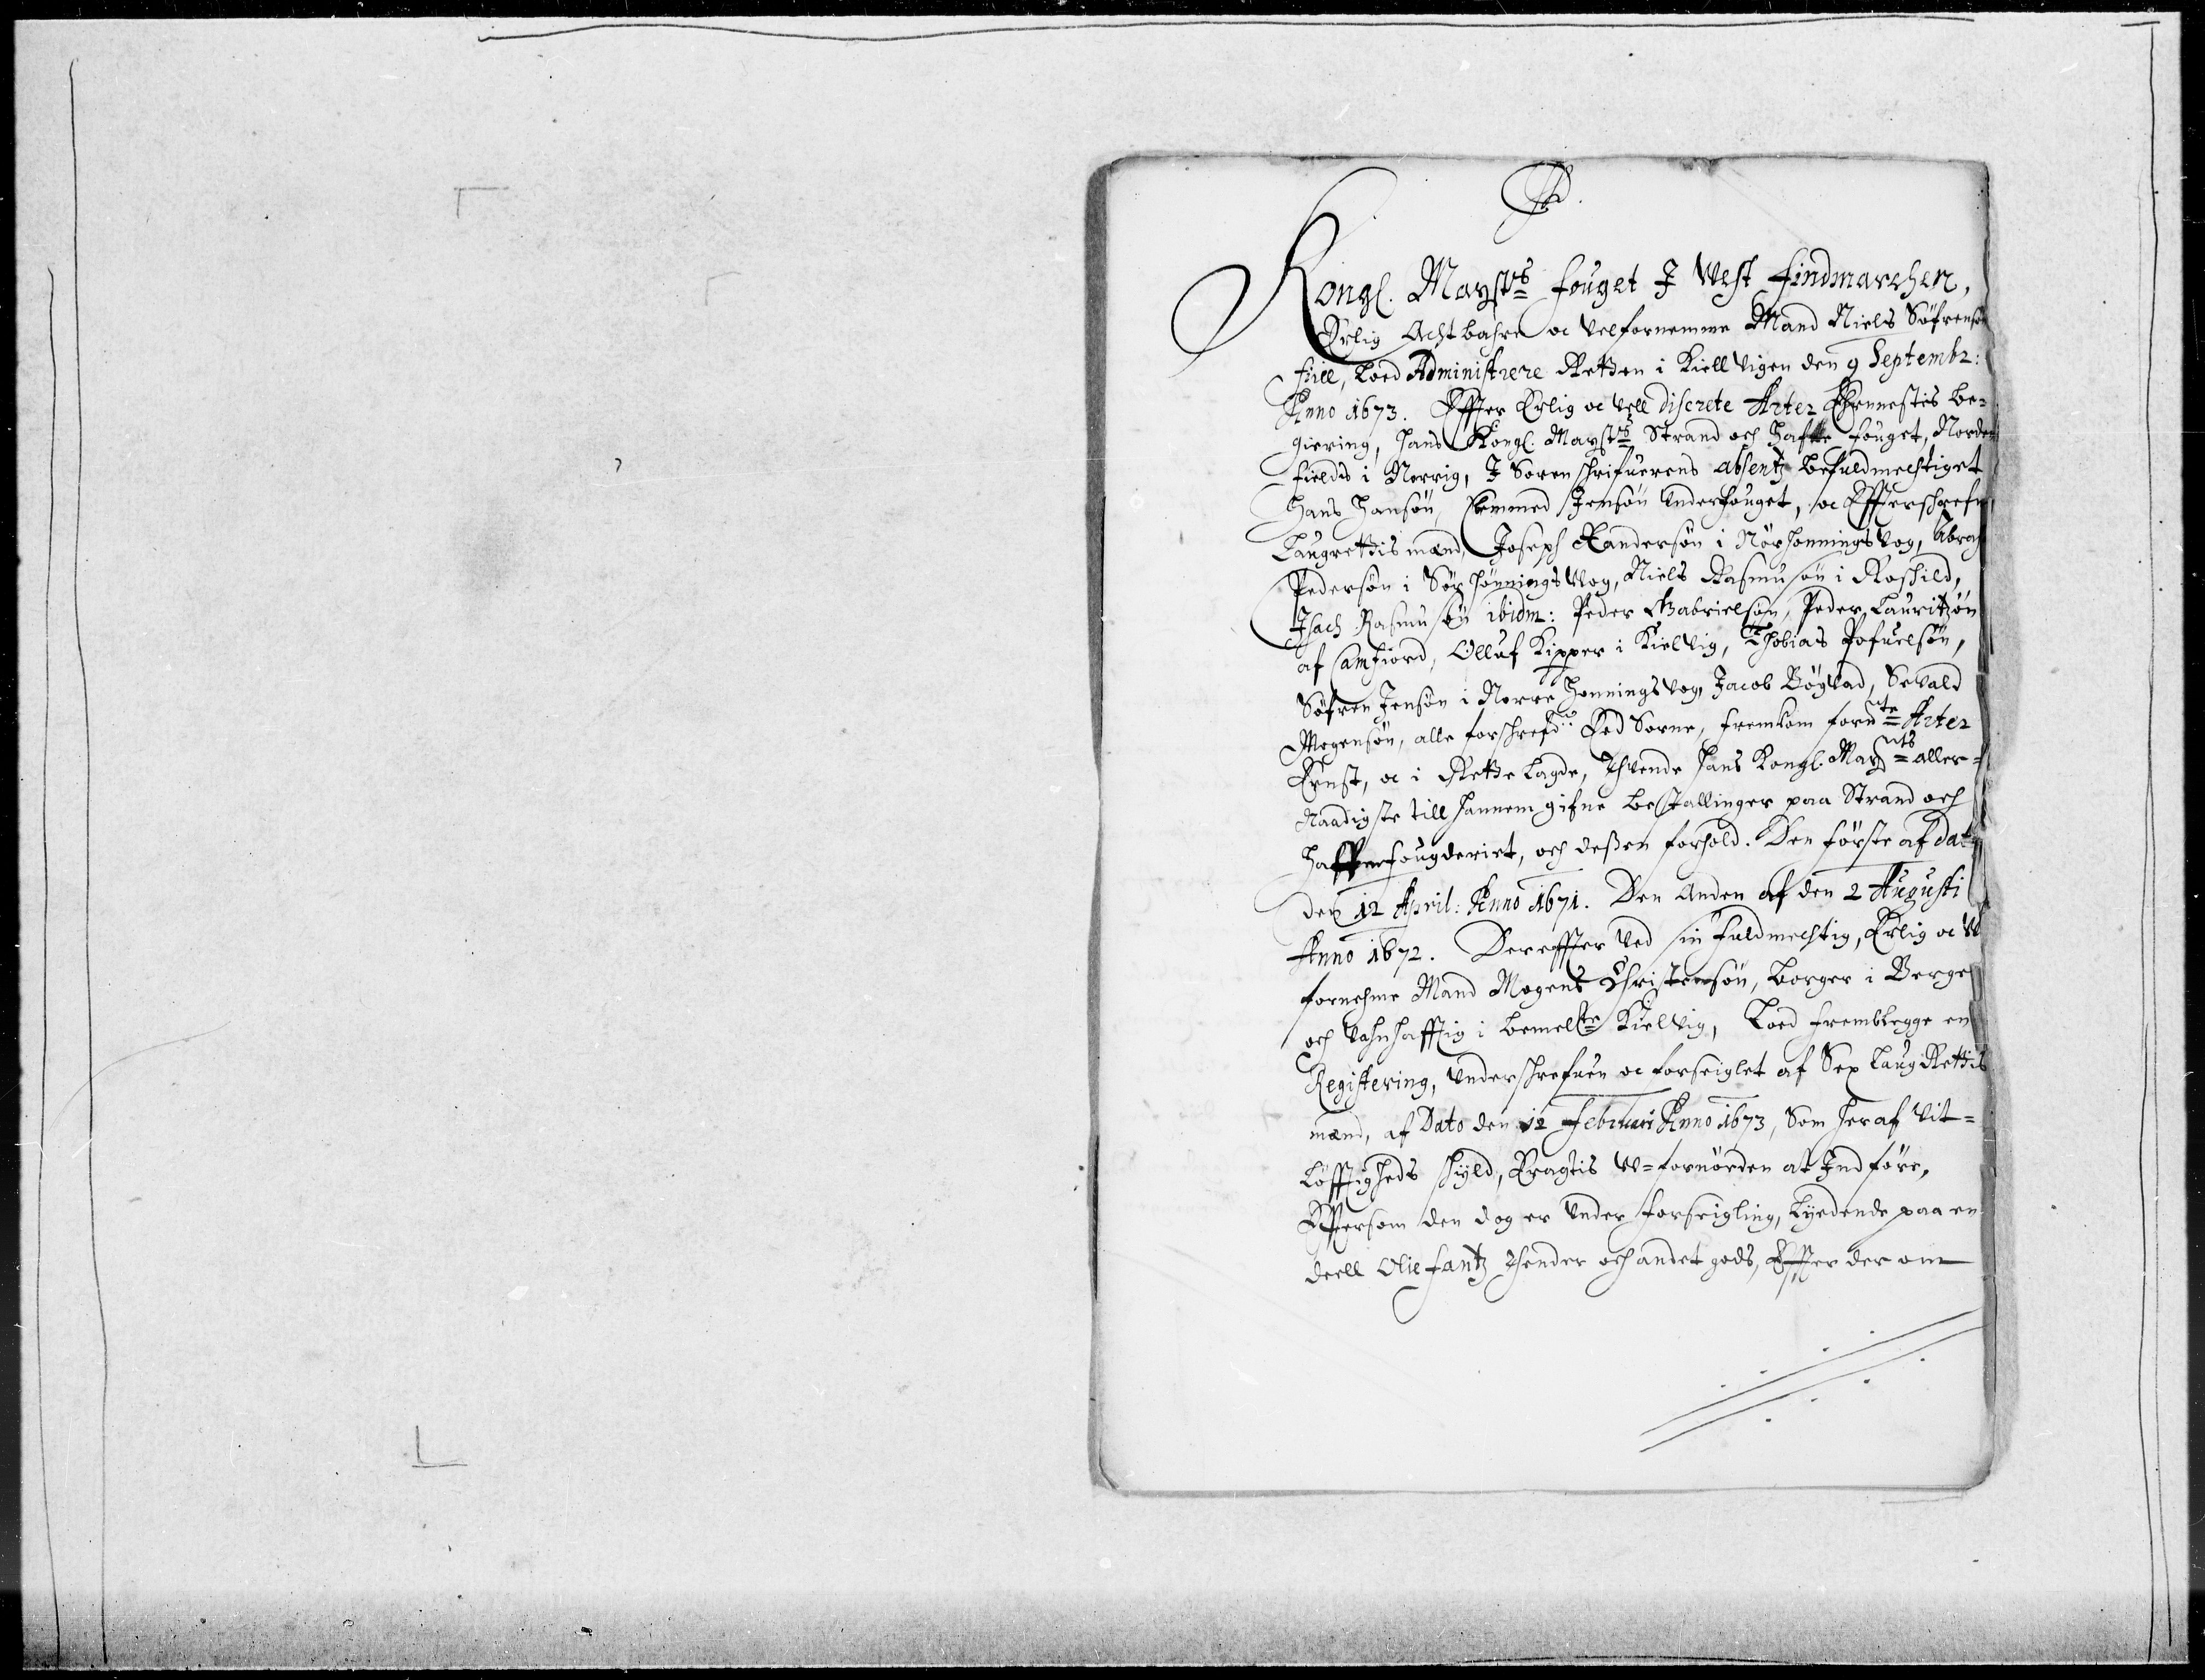 Kongl. Maysts fouget I West Findmarchen,
Erlig Achtbahre oc velfornemme Mand Niels Söfrensön
Fiil, loed Administrere Retten i Kiellvigen den 9 Septembr:
Anno 1673. Effter Erlig oc vell discrete Arter Ehrnestis be=
giering, Hans Kongl. Maysts Strand och Hafne fouget, Norden
fields i Norrig, I Soren schrifuerens absentz befuldmechtiget
Hans Hansön, Jensön Underfouget, oc Effterschrefne
Laugrettis mænd, Joseph Randersön i Nörhonningsvog, Abrah
Pedersön i Sör Honningsvog, Niels Rasmusön i Roschild,
Isach Rasmusön ibidm: Peder Gabrielsön, Peder Lauritzön
af Camfiord, Olluf Kipper i Kielvig, Thobias Pofuelsön,
Söfren Jensön i Norre Honningsvog, Jacob Bögvad, Sevald
Mogensön, alle forschrefd: Eed Sorne, fremkom fornte Arter
Ernst, oc i Rette lagde, Thvende Hans Kongl. Maysts aller=
Naadigste till hannem gifne bestallinger paa Strand och
Haffnefougderiet, och dessen forhold. Den förste af dato
den 12 April: Anno 1671. Den Anden af den 2 Augusti
Anno 1672. Dereffter ved sin fuldmechtig, Erlig oc W
fornehme Mand Mogens Christensön, borger i Bergen
och vahnhafftig i bemelte Kielvig, Loed fremblegge en
Registering, underschrefuen oc forseiglet af Sex LaugRettis
mænd, af Dato den 12 Februari Anno 1673, Som heraf vit=
löfftigheds schyld, Eragtis W=fornörden at Indföre,
Effersom den dog er under forseigling, lydende paa en
deell Oliefantz Thender och andet gods, Effter der om